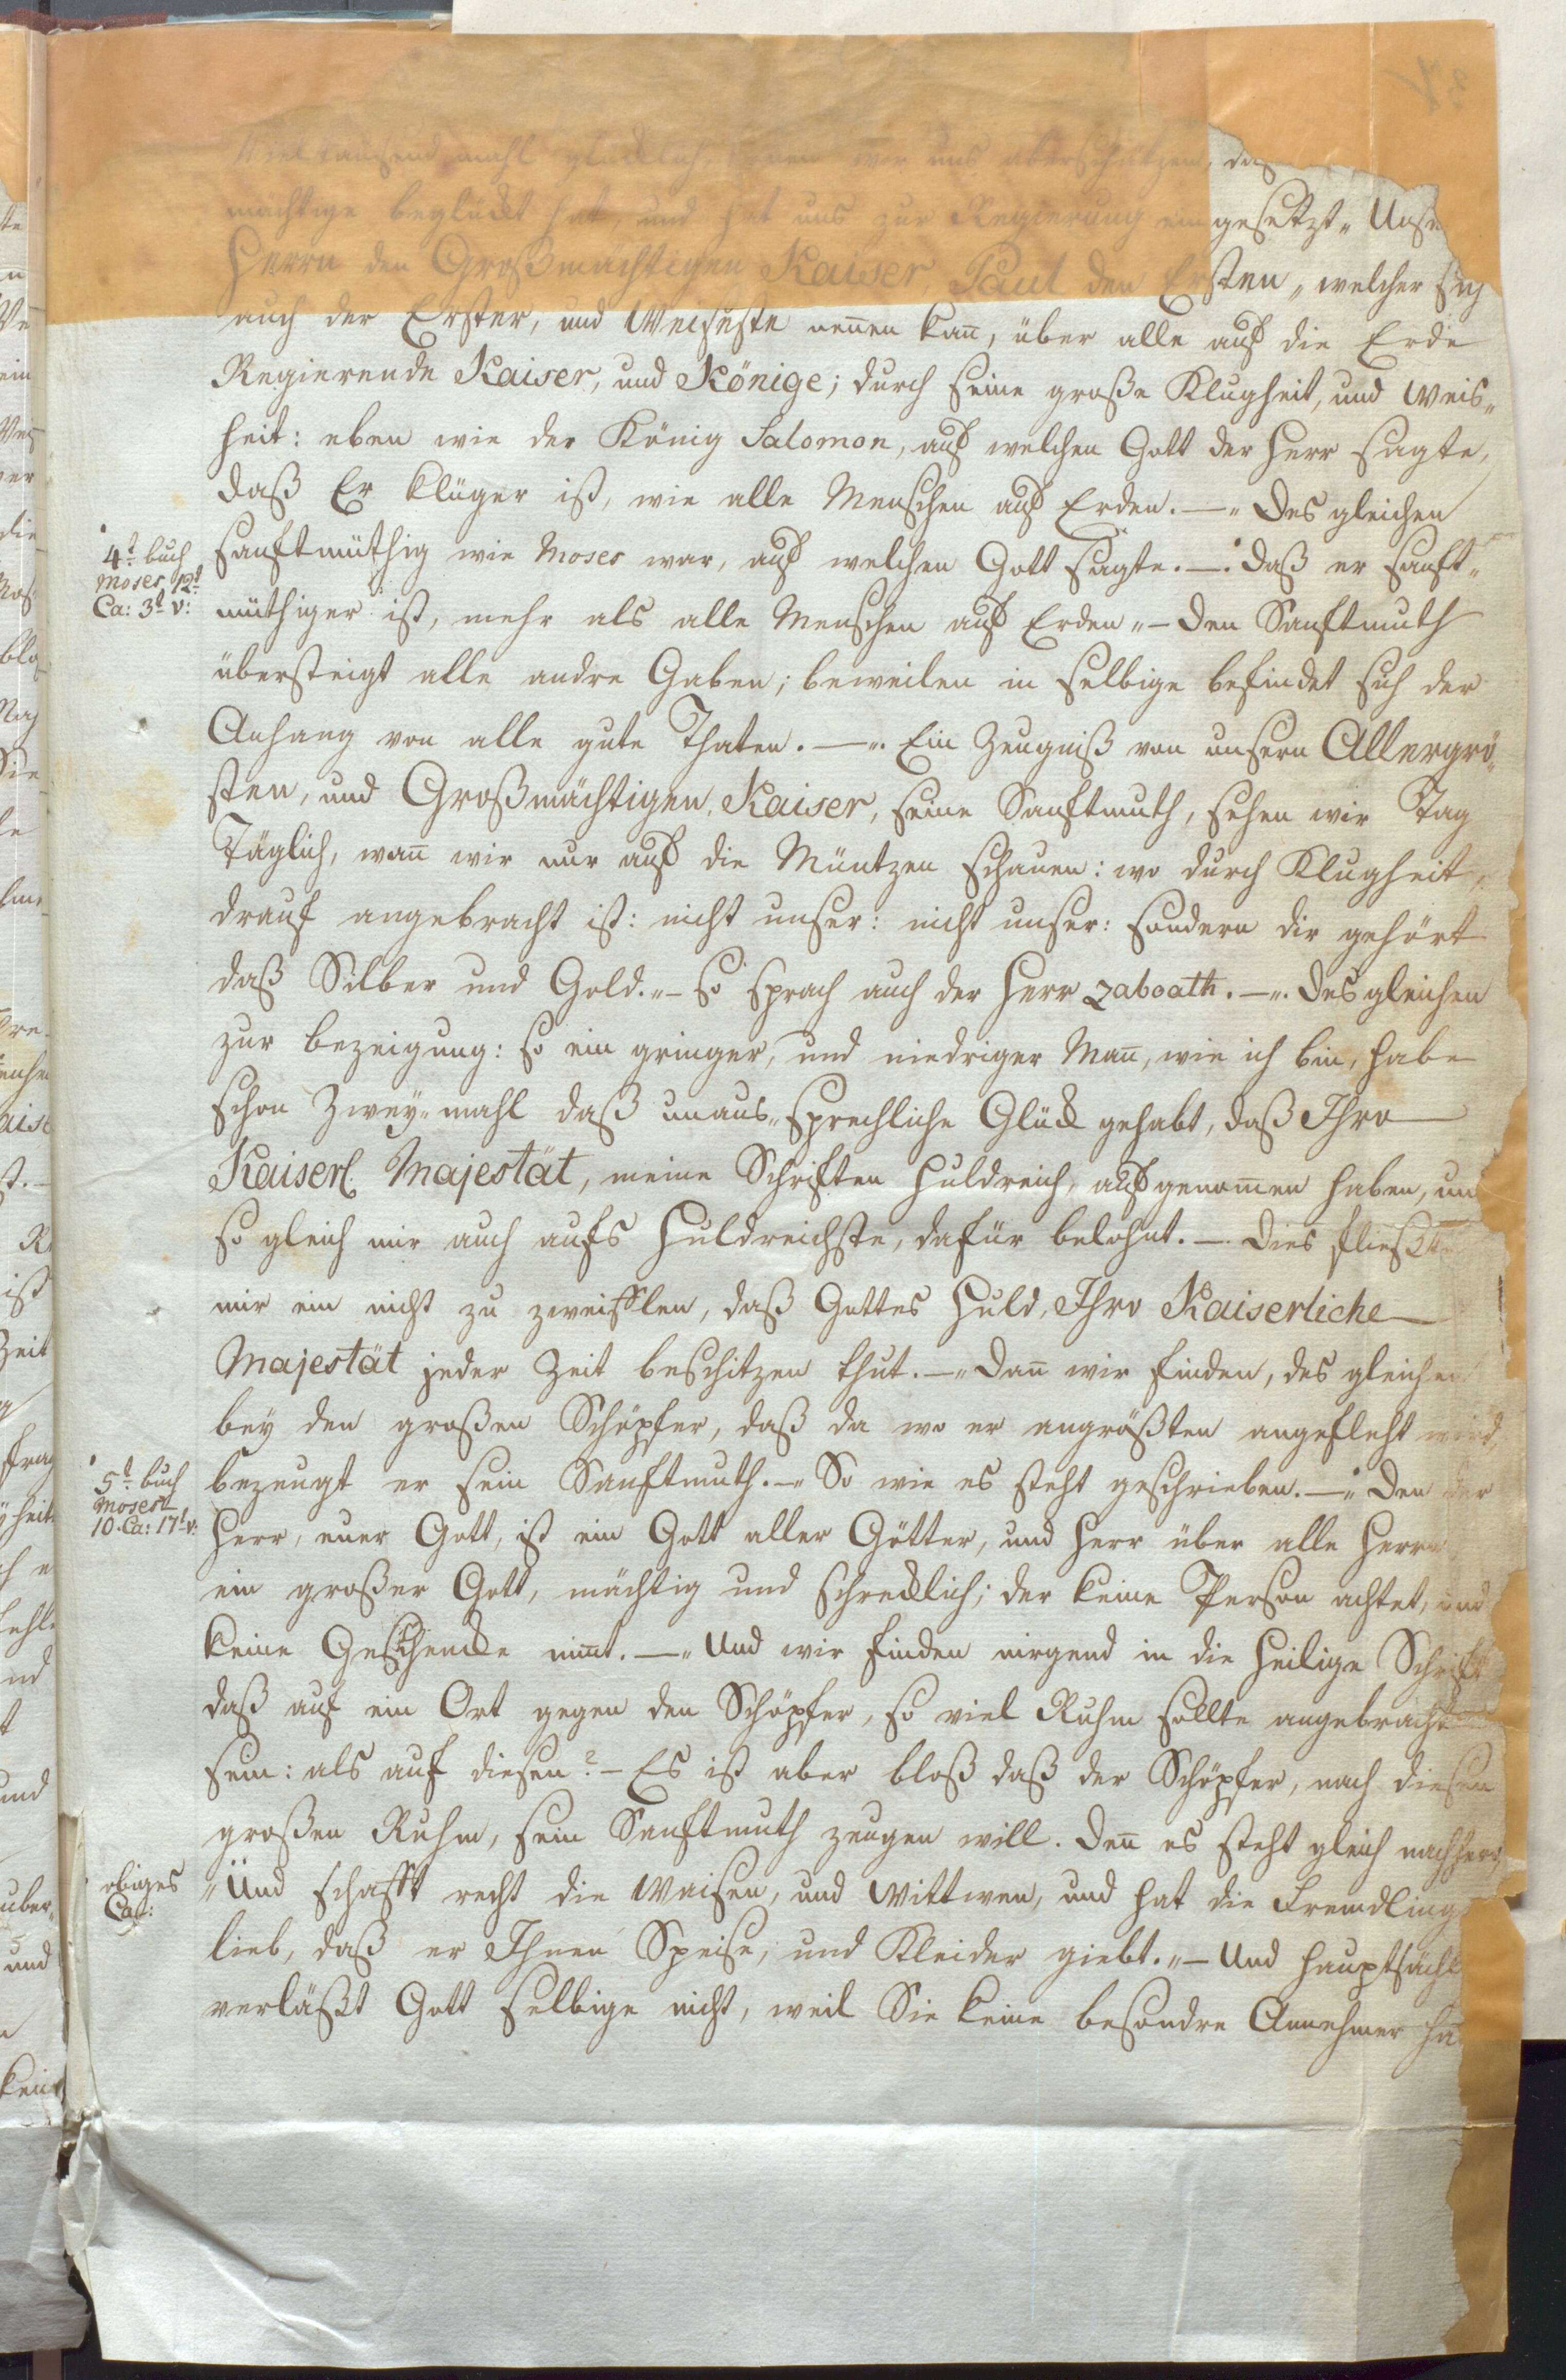 Viel tausend mahl glücklich, können wir uns aberschätzen, daß
mächtige beglückt hat, und hat uns zur Regierung eingesetzt„ Unse
Herrn den Großmächtigen Kaiser, Paul den Ersten„ welcher sich
auch der Erster, und Weiseste nen̄en kan̄, über alle auf die Erde
Regierende Kaiser, und Könige; durch seine große Klugheit, und Weis„
heit: eben wie der König Salomon, auf welchen Gott der Herr sagte,
daß Er klüger ist, wie alle Menschen auf Erden. —„ Des gleichen
4t. buch
Moses 12t.
Ca: 3t v:
sanftmüthig wie Moses war, auf welchen Gott sagte. —. daß er sanft„
müthiger ist, mehr als alle Menschen auf Erden„ — Den Sanftmuth
übersteigt alle andre Gaben; beweilen in selbige befindet sich der
Anhang von alle gute Thaten. —„. Ein Zeugniß von unsern Allergrö„
sten, und Großmächtigen, Kaiser, seine Sanftmuth, sehen wir Tag
Täglich, wan̄ wir nur auf die Müntzen schauen: wo durch Klugheit,
drauf angebracht ist: nicht unser: nicht unser: sondern dir gehört
daß Silber und Gold.„ — so sprach auch der Herr zaboath. —„. Des gleichen
zur bezeigung: so ein gringer, und niedriger Man̄, wie ich bin, habe
schon Zwey„mahl daß unaus„sprechliche Glück gehabt, daß Ihro
Kaiserl. Majestät, meine Schriften Huldreich, aufgenom̄en haben, un
so gleich mir auch aufs Huldreichste, dafür belohnt. —. Dies fließt
mir ein nicht zu zweifflen, daß Gottes Huld, Ihro Kaiserliche
Majestät jeder Zeit beschitzen thut. —„ Dan̄ wir finden, des gleichen
bey den großen Schöpfer, daß da wo er angrößten angefleht wird,
5t. buch
Moses
10. Ca: 17t v:
bezeugt er sein Sanftmuth. —„ So wie es steht geschrieben. —„ Den der
Herr, euer Gott, ist ein Gott aller Götter, und Herr über alle Herrn
ein großer Gott, mächtig und schrecklich; der keine Person achtet, und
keine Geschencke nim̄t. —„ Und wir finden nirgend in die Heilige Schrift
daß auf ein Ort gegen den Schöpfer, so viel Ruhm sollte angebracht
sein: als auf diesen? — Es ist aber bloß daß der Schöpfer, nach diesen
großen Ruhm, sein Sanftmuth zeugen will. Den̄ es steht gleich nachher
obiges
Ca:
„Und schafft recht die Waisen, und Wittwen, und hat die Fremdling
lieb, daß er Ihnen Speise, und Kleider giebt.„ — Und hauptsächl
verläßt Gott selbige nicht, weil Sie keine besondre Annehmer ha